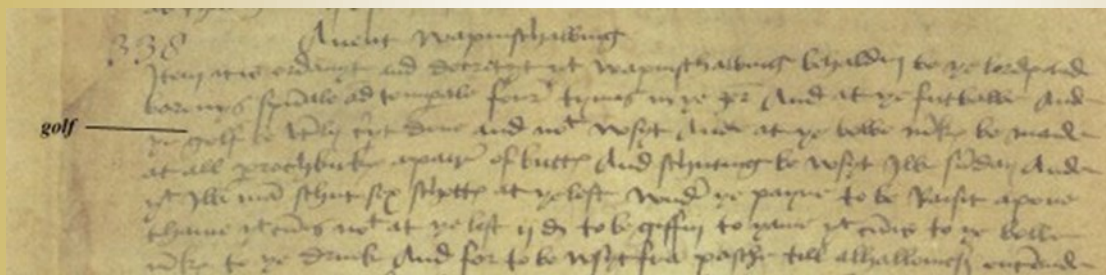 338 Anent wapinschawing
Item it is ordanyt and decretyt yt wapinschawing be haldin be ye lordis and
baronys spuale and temporale four tymes in ye yer And at ye futbawe And
golf
ye golf be cryt done and not usyt And at ye bowe be maid
at all a payr of buttis And schuting be usyt ilk sunday And
yt ilk man schut sex schottis at ye lest und ye payne to be Raisit apone
thame yt cumis not at ye lest ij d to be giffin to yame yt cumis to ye bowe
to ye drink And for to be usyt fra pasche till alhallomes